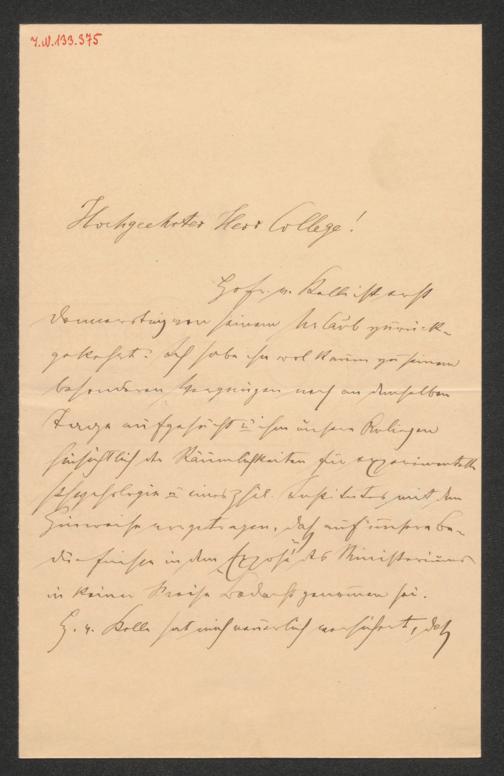 I.N. 133.375
Hochgeehrter Herr College!
Hofr. v. Kelle ist erst
Donnerstag von seinem Urlaub zurück-
gekehrt. Ich habe ihn wol kaum zu seinem
besonderen Vergnügen noch an demselben
Tage aufgesucht u ihm unsere Anliegen
hinsichtlich der Räumlichkeiten für experimentelle
Psychologie u eines phil. Institutes mit dem
Hinweise vorgetragen, daß auf unsere Be-
dürfnisse in dem Exposé des Ministeriums
in keiner Weise Bedacht genommen sei.
H. v. Kelle hat mich neuerlich versichert, daß